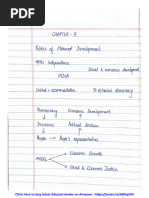 CHAPTER - 3
Politics of Planned Development
After Independence
INDIA
Social & economic development
Social & accommodative
democracy
Democracy
Economic Development
Decisions
Political decision
People
People's representatives
Economic Growth
MODEL
Social & Economic Justice
Click here to buy latest Educart books on Amazon -